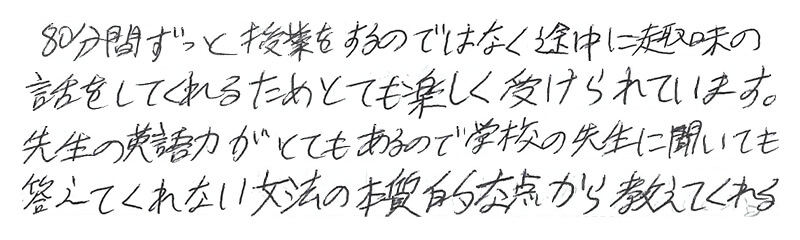 80分間ずっと授業をするのではなく途中に趣味の
話をしてくれるためとても楽しく受けられています。
先生の英語力がとてもあるので学校の先生に聞いても
答えてくれない文法の本質的な点から教えてくれる